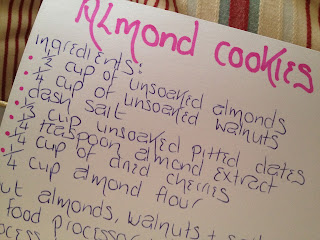 Almond Cookies
Ingredients:
• 1/2 cup of unsoaked almonds
• 1/4 cup of unsoaked walnuts
• dash salt
• 1/3 cup unsoaked pitted dates
• 1/4 teaspoon almond extract
• 1/4 cup of dried cherries
• 1/4 cup almond flour
almonds, walnuts +
food processor